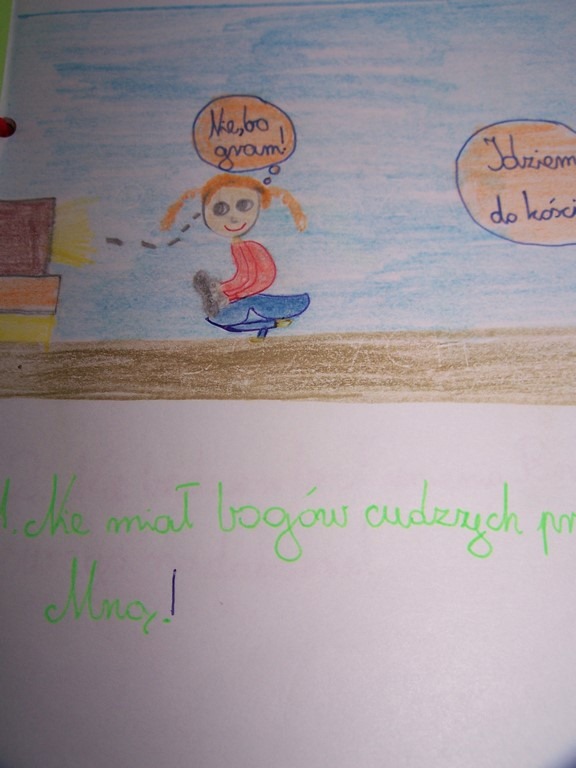 Nie, bo
gram!
Idziem
do kości
1. Nie miał bogów cudzych pr
Mną!